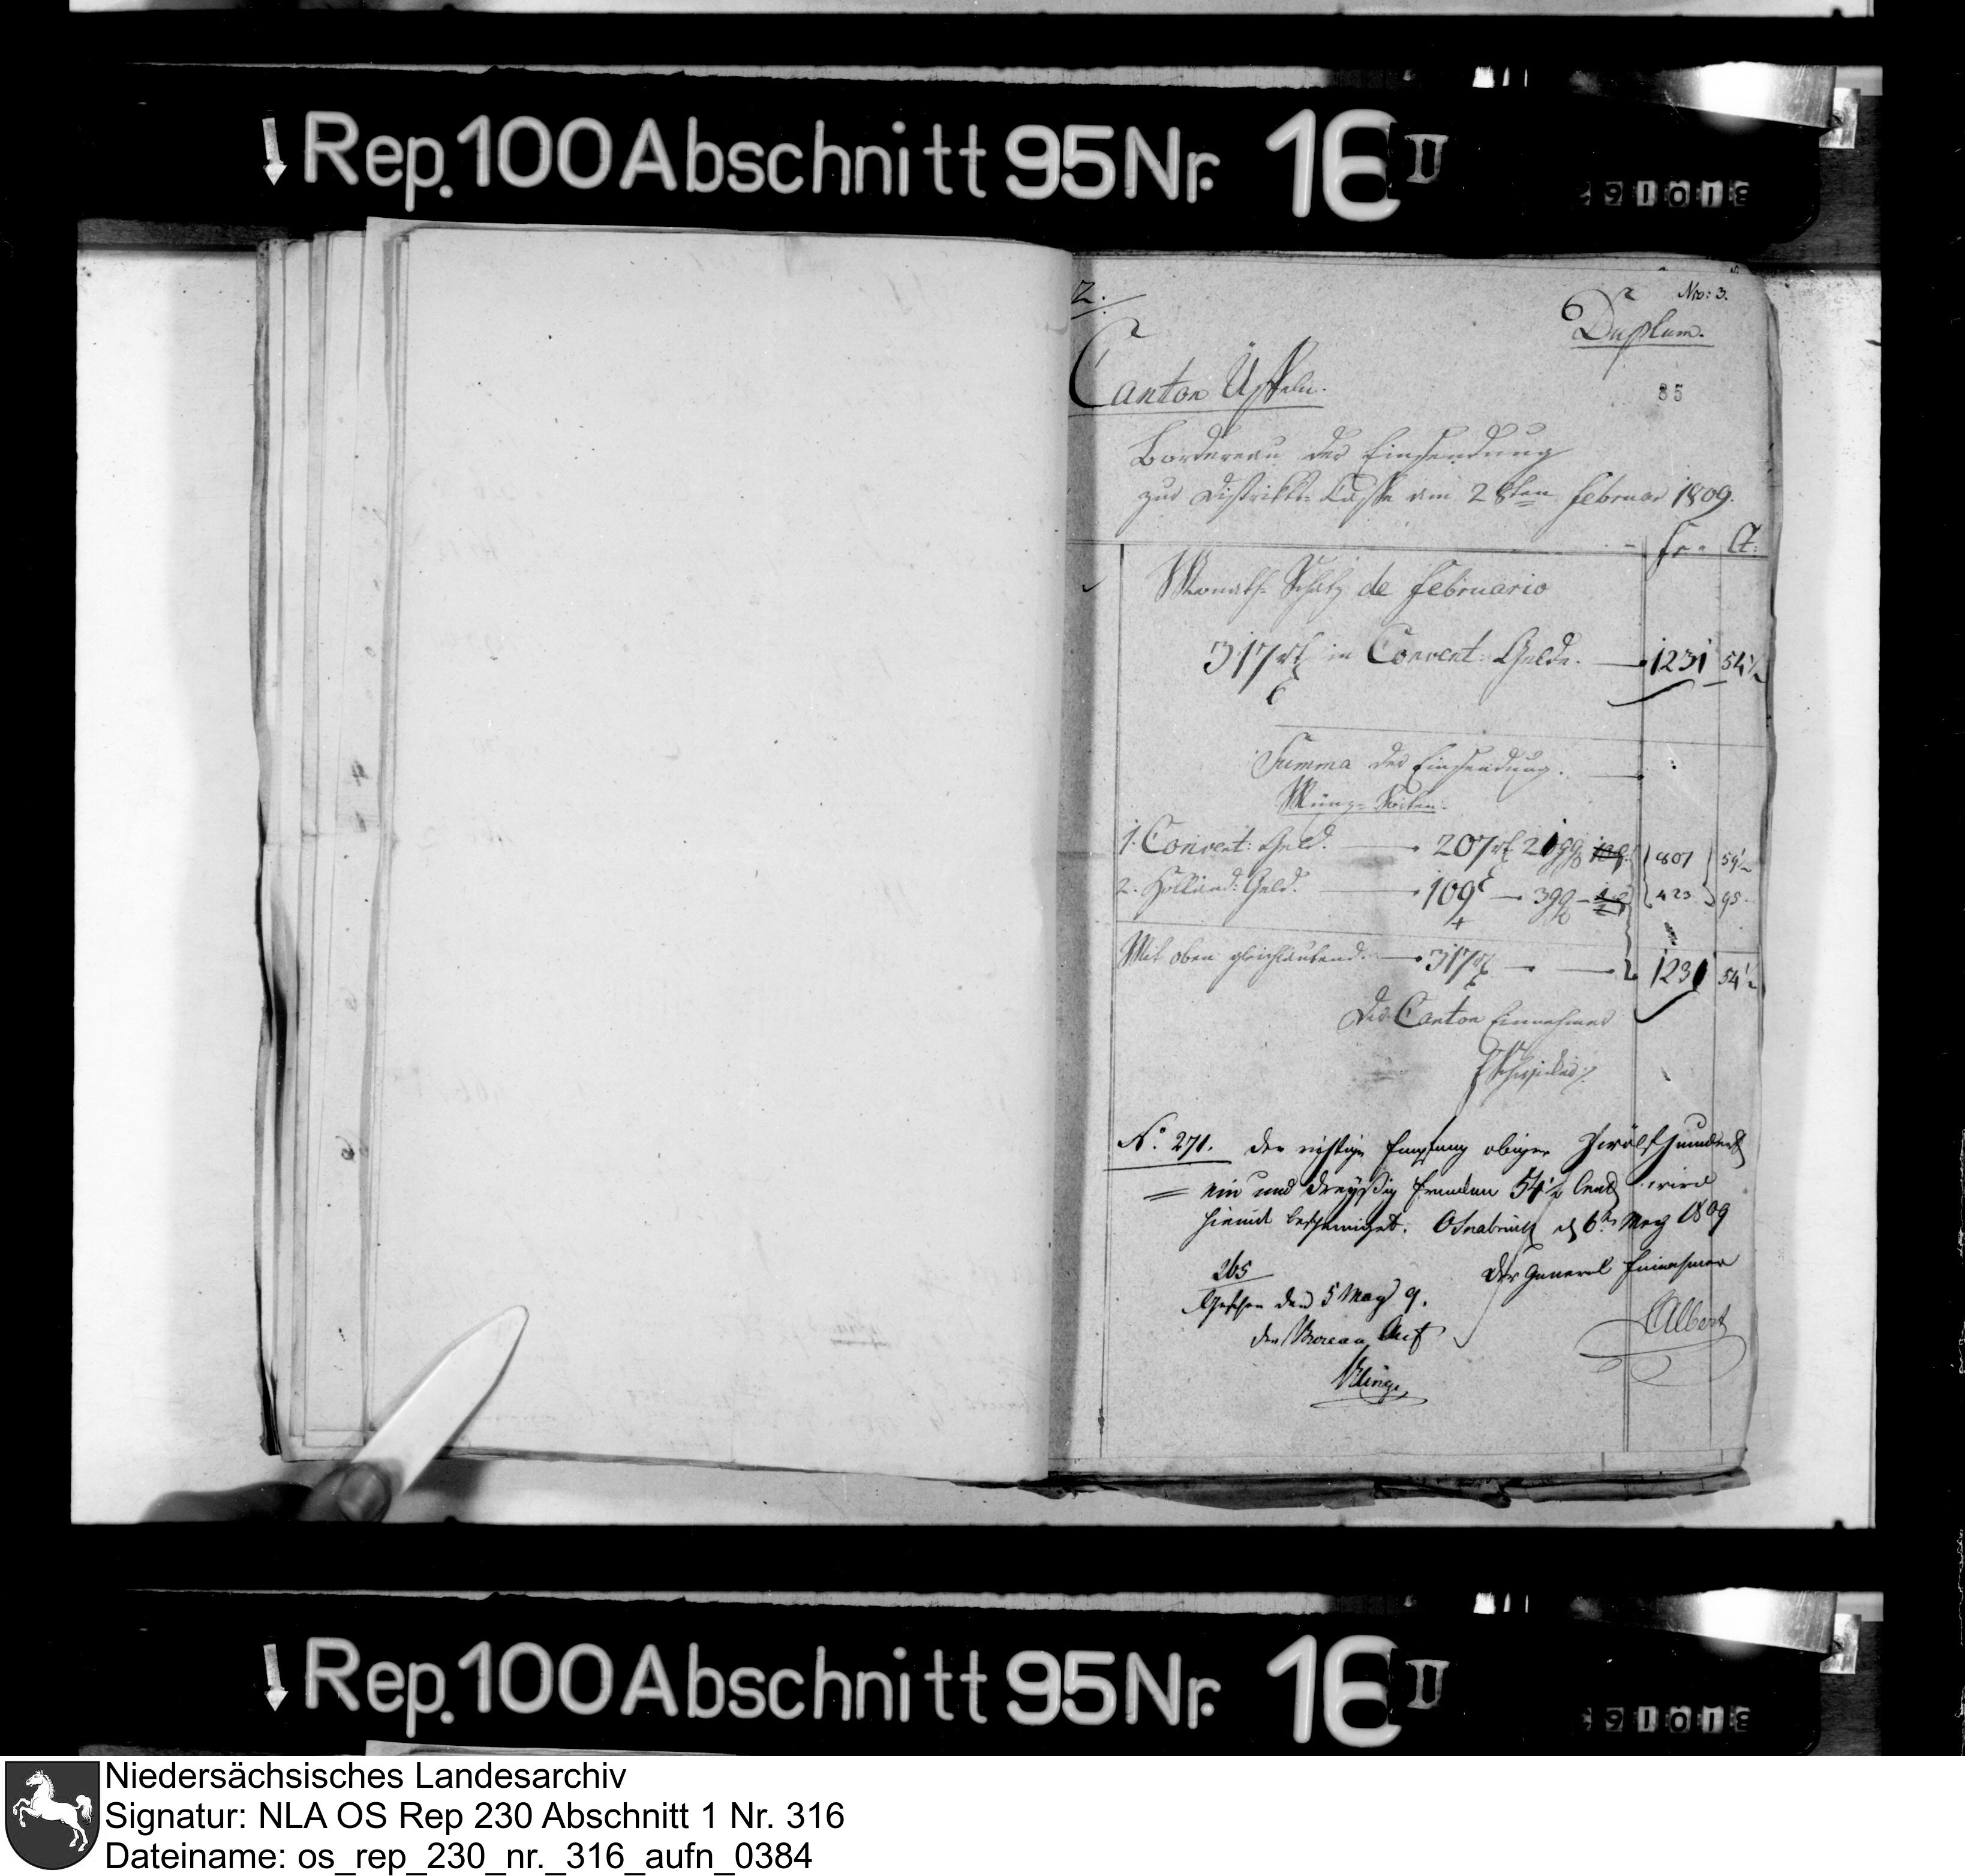 Rep. 100 Abschnitt 95 Nr. 16 II
291018
2.
Nro: 3.
Duplum.
85
Canton Üffeln.
Bordereau der Einsendung
zur Distrikts-Casse am 28ten Februar 1809.
fr. Ct.
Monath-Schatz de Februario
317 rt in Convent: Gelde. 1231 54½
Summa der Einsendung.
Münz-Sorten.
1. Convent: Geld. 207 rt 21 gg 807 59½
2. Holländ: Geld. 109 3 gg 423 95
Mit oben gleichlautend. 317 rt 1231 54½
Der Canton Einnehmer
No. 271. Der richtige Empfang obiger Zwölfhundert
ein und dreyßig Franken 54½ Cent wird
hiemit bescheiniget. Osnabrück d 6ten Merz 1809
Der General Einnehmer
Albert
265
Gesehen den 5 Merz 9.
Der Bureau Chef
Rep. 100 Abschnitt 95 Nr. 16 II
91018
Niedersächsisches Landesarchiv
Signatur: NLA OS Rep 230 Abschnitt 1 Nr. 316
Dateiname: os_rep_230_nr._316_aufn_0384